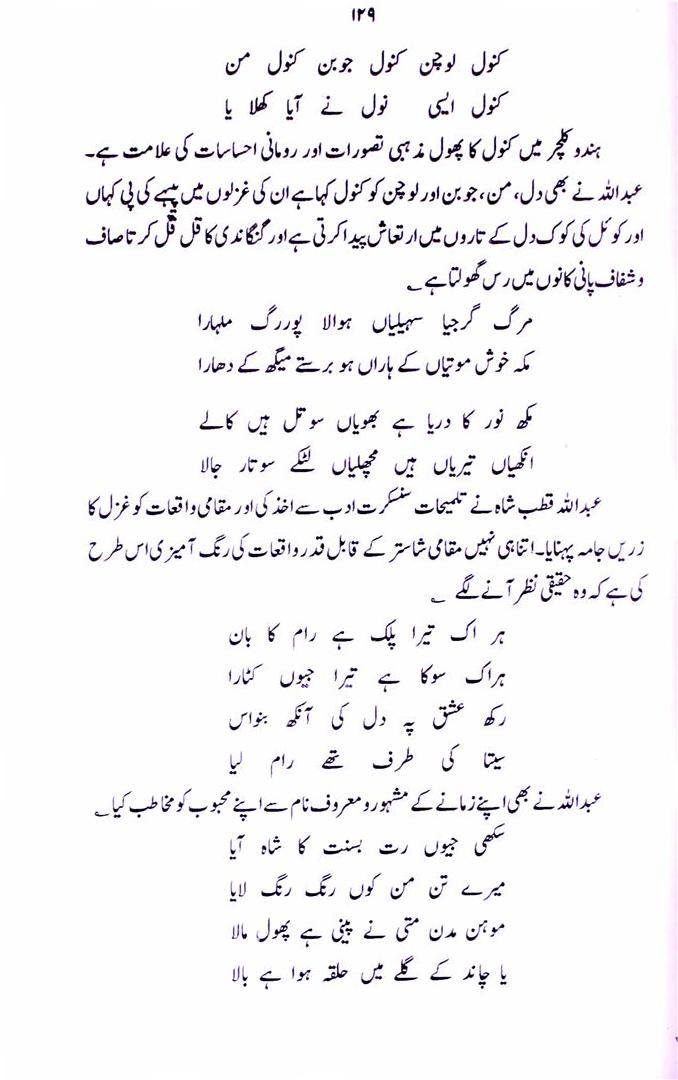 ۱۲۹
کنول لوچن کنول جوبن کنول من
کنول ایسی نول نے آیا کھلا یا
ہندو کلچر میں کنول کا پھول مذہبی تصورات اور رومانی احساسات کی علامت ہے۔
عبداللہ نے بھی دل، من، جوبن اور لوچن کو کنول کہا ہے ان کی غزلوں میں پپیہے کی پی کہاں
اور کوئل کی کوک دل کے تاروں میں ارتعاش پیدا کرتی ہے اور گنگا ندی کا قل قل کرتا صاف
و شفاف پانی کانوں میں رس گھولتا ہے ؎
مرگ گرجیا سہیلیاں ہوالا پوررگ ملہارا
مکہ خوش موتیاں کے ہاراں ہو برستے میگھ کے دھارا
مکھ نور کا دریا ہے بھویاں سو تل ہیں کالے
انکھیاں تیریاں ہیں مچھلیاں لٹکے سو تار جالا
عبداللہ قطب شاہ نے تلمیحات سنسکرت ادب سے اخذ کی اور مقامی واقعات کو غزل کا
زریں جامہ پہنایا۔ اتنا ہی نہیں مقامی شاستر کے قابل قدر واقعات کی رنگ آمیزی اس طرح
کی ہے کہ وہ حقیقی نظر آنے لگے ؎
ہر اک تیرا پلک ہے رام کا بان
ہراک سوکا ہے تیرا جیوں کٹارا
رکھ عشق پہ دل کی آنکھ بنواس
سیتا کی طرف تھے رام لیا
عبداللہ نے بھی اپنے زمانے کے مشہور و معروف نام سے اپنے محبوب کو مخاطب کیا ؎
سکھی جیوں رت بسنت کا شاہ آیا
میرے تن من کوں رنگ رنگ لایا
موہن مدن متی نے پینی ہے پھول مالا
یا چاند کے گلے میں حلقہ ہوا ہے بالا